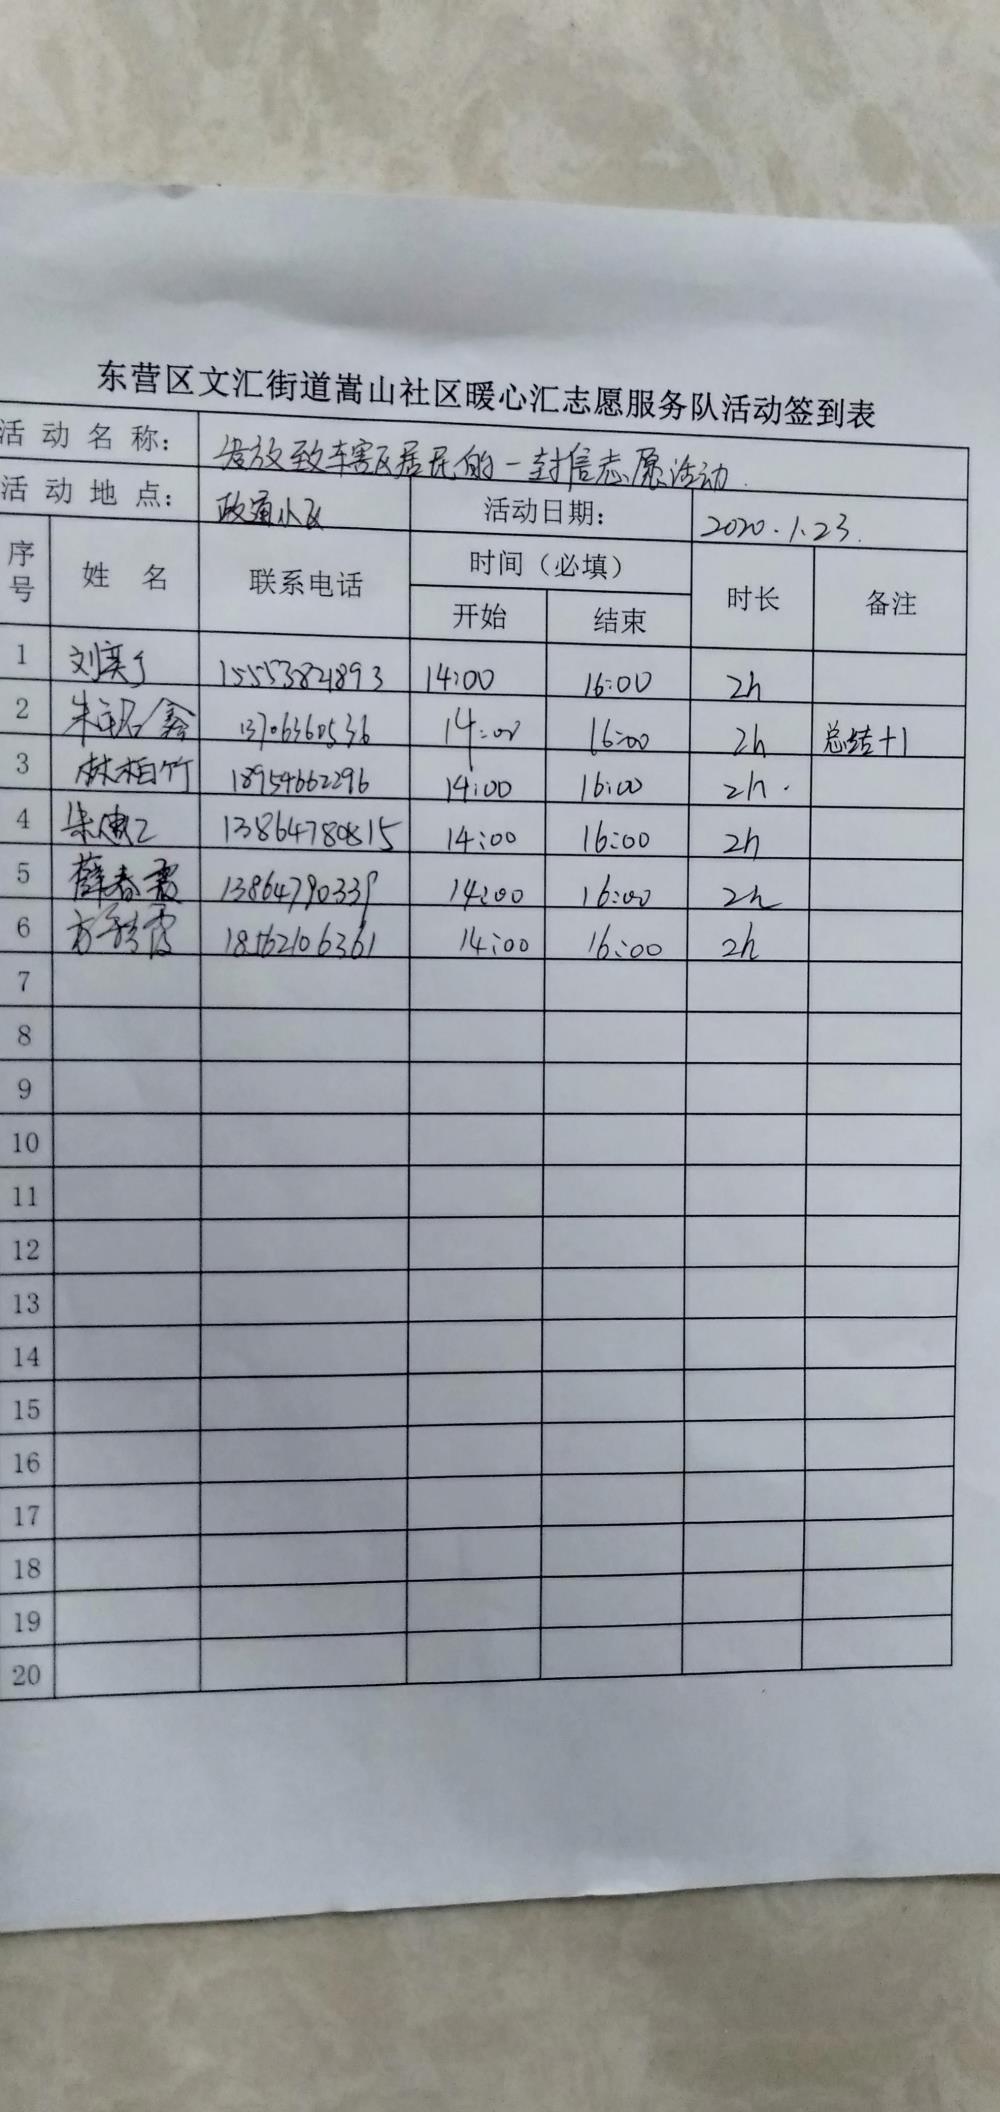 东营区文汇街道嵩山社区暖心汇志愿服务队活动签到表
活动名称： 发放致辖区居民的一封信志愿活动.
活动地点： 政通小区 活动日期： 2020.1.23.
序号 姓名 联系电话 时间（必填） 时长 备注
开始 结束
1 刘 15553821893 14:00 16:00 2h
2 朱 鑫 13706360536 14:00 16:00 2h 总结+1
3 林柏竹 18954662296 14:00 16:00 2h.
4 朱 13864780815 14:00 16:00 2h
5 薛春霞 13864790339 14:00 16:00 2h
6 方 霞 18562106361 14:00 16:00 2h
7
8
9
10
11
12
13
14
15
16
17
18
19
20